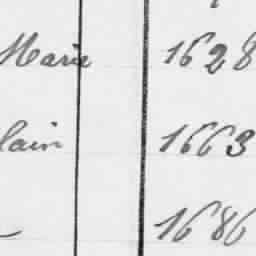 Marie 1628
lain 1663
1686